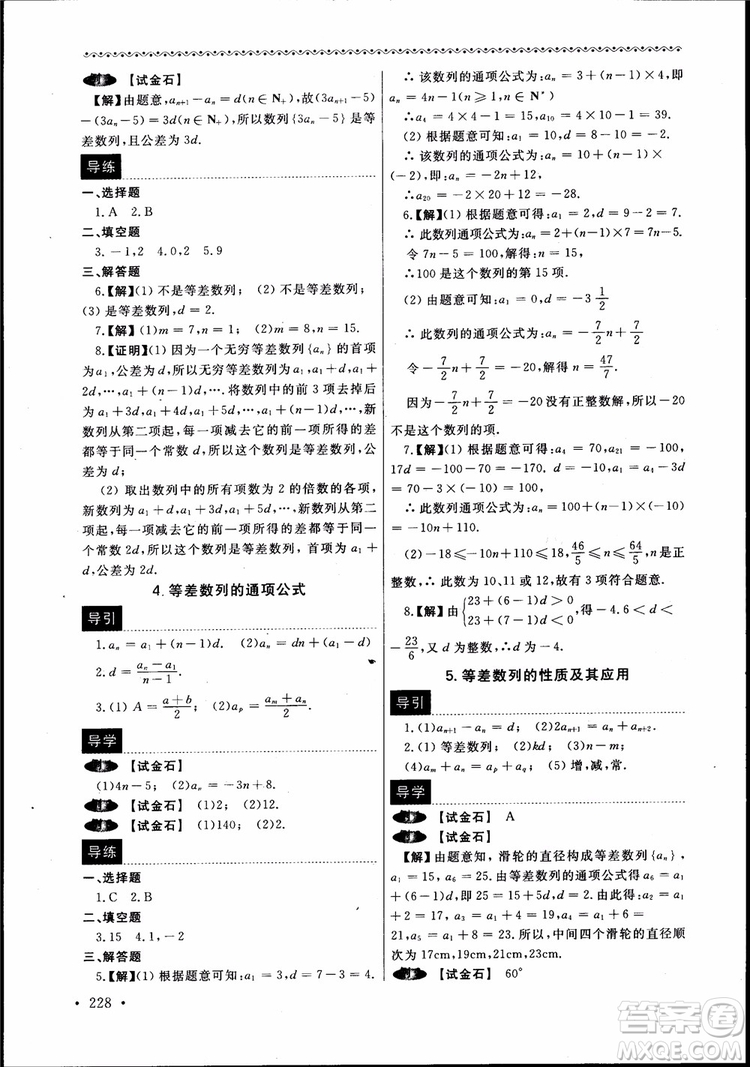 【试金石】
【解】由题意,aₙ₊₁-aₙ=d(n∈N₊),故(3aₙ₊₁-5)
-(3aₙ-5)=3d(n∈N₊),所以数列{3aₙ-5}是等
差数列,且公差为3d.
导练
一、选择题
1.A 2.B
二、填空题
3.-1,2 4.0,2 5.9
三、解答题
6.【解】(1)不是等差数列; (2)不是等差数列;
(3)是等差数列,d=2.
7.【解】(1)m=7,n=1. (2)m=8,n=15.
8.【证明】(1)因为一个无穷等差数列{aₙ}的首项
为a₁,公差为d,所以等差数列为a₁,a₁+d,a₁+
2d,…,a₁+(n-1)d,….将数列中的前3项去掉后
为a₁+3d,a₁+4d,a₁+5d,…,a₁+(n-1)d,…,新
数列从第二项起,每一项减去它的前一项所得的差
都等于同一个常数d,所以新数列为等差数列,首项为
a₁+3d,公差为d;
(2)取出数列中的所有项数为2的倍数的各项,
新数列为a₁+d,a₁+3d,a₁+5d,…,新数列从第二
项起,每一项减去它的前一项所得的差都等于同一
个常数2d,所以新数列为等差数列,首项为a₁+
d,公差为2d.
4.等差数列的通项公式
导引
1.aₙ=a₁+(n-1)d. (2)aₙ=dn+(a₁-d)
2.d=(aₙ-a₁)/(n-1).
3.(1)A=(a+b)/2; (2)aₚ=(aₘ+aₙ)/2.
导学
【试金石】
(1)4n-5; (2)aₙ=-3n+5.
【试金石】 (1)2; (2)2.
【试金石】 (1)140; (2)2.
导练
一、选择题
1.C 2.B
二、填空题
3.15 4.1,-2
三、解答题
5.【解】(1)根据题意可知:a₁=3,d=7-3=4.
∴该数列的通项公式为:aₙ=3+(n-1)×4,即
aₙ=4n-1(n≥1,n∈N*)
∴a₄=4×4-1=15,a₁₀=4×10-1=39.
(2)根据题意可知:a₁=10,d=8-10=-2.
∴该数列的通项公式为:aₙ=10+(n-1)×
(-2),即:aₙ=-2n+12,
∴a₂₀=-2×20+12=-28.
6.【解】(1)根据题意可得:a₁=2,d=9-2=7.
∴此数列通项公式为:aₙ=2+(n-1)×7=7n-5.
令7n-5=100,解得:n=15,
∴100是这个数列的第15项.
(2)由题意可知:a₁=0,d=-3 1/2
∴此数列的通项公式为:aₙ=-7/2n+7/2,
令-7/2n+7/2=-20,解得n=47/7.
因为-7/2n+7/2=-20没有正整数解,所以-20
不是这个数列的项.
7.【解】(1)根据题意:a₄=70,a₂₁=-100,
17d=-100-70=-170,d=-10,a₁=a₄-3d=
70-3×(-10)=100.
∴此数列通项公式为:aₙ=100+(n-1)×(-10)
=-10n+110.
(2)-18≤-10n+110≤18,46/5≤n≤64/5,n是正
整数,∴此数列10、11或12,故有3项符合题意.
8.【解】由{23+(6-1)d>0 23+(7-1)d<0解得:-4.6<d<
-23/6,又d为整数,∴d为-4.
5.等差数列的性质及其应用
导引
1.(1)aₙ₊₁-aₙ=d; (2)2aₙ₊₁=aₙ+aₙ₊₂.
2.(1)等差数列; (2)kd; (3)d=(aₘ-aₙ)/(m-n);
(4)aₘ+aₙ=aₚ+a_q; (5)增,减,常.
导学
【试金石】 A
【试金石】
【解】由题意知,滑轮的直径构成等差数列{aₙ},且
a₁=15,a₆=25.由等差数列的通项公式得a₆=a₁
+(6-1)d,即25=15+5d,解得d=2.a₂=17,
a₃=19,a₄=21,a₅=23.所以,中间四个滑轮的直径顺
次为17cm,19cm,21cm,23cm.
【试金石】 60°
·228·
答案圈
MXQE.COM